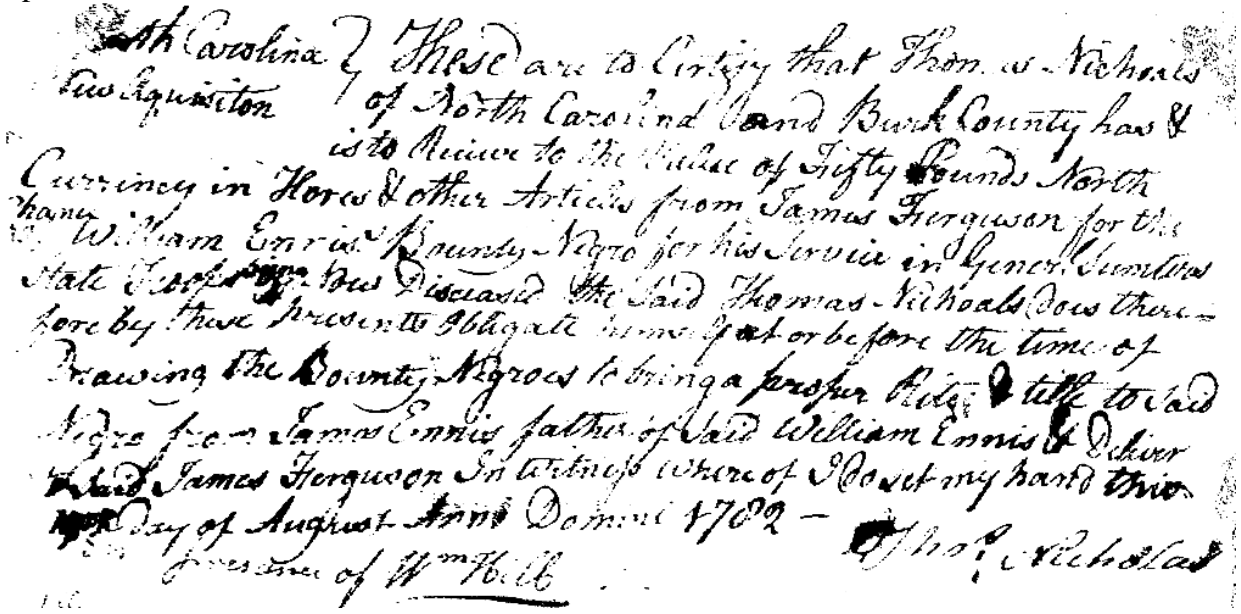 th Carolina } These are to Certify that Thomas Nichoals
of North Carolina and Burk County has &
is to Recieve to the Value of Fifty Pounds North
Currency in Hores & other Articles from James Ferguson for the
William Ennis Bounty Negro for his Service in Generl Sumters
State Troops being Now Diseased the Said Thomas Nichoals does there=
fore by these presents Obligate himself at or before the time of
Drawing the Bounty Negroes to bring a proper Rite & title to Said
Negro from James Ennis father of Said William Ennis & Deliver
Said James Ferguson In Witness where of I do set my hand this
day of August Anno Domini 1782 —
presence of Wm Hill
Thos. Nicholas